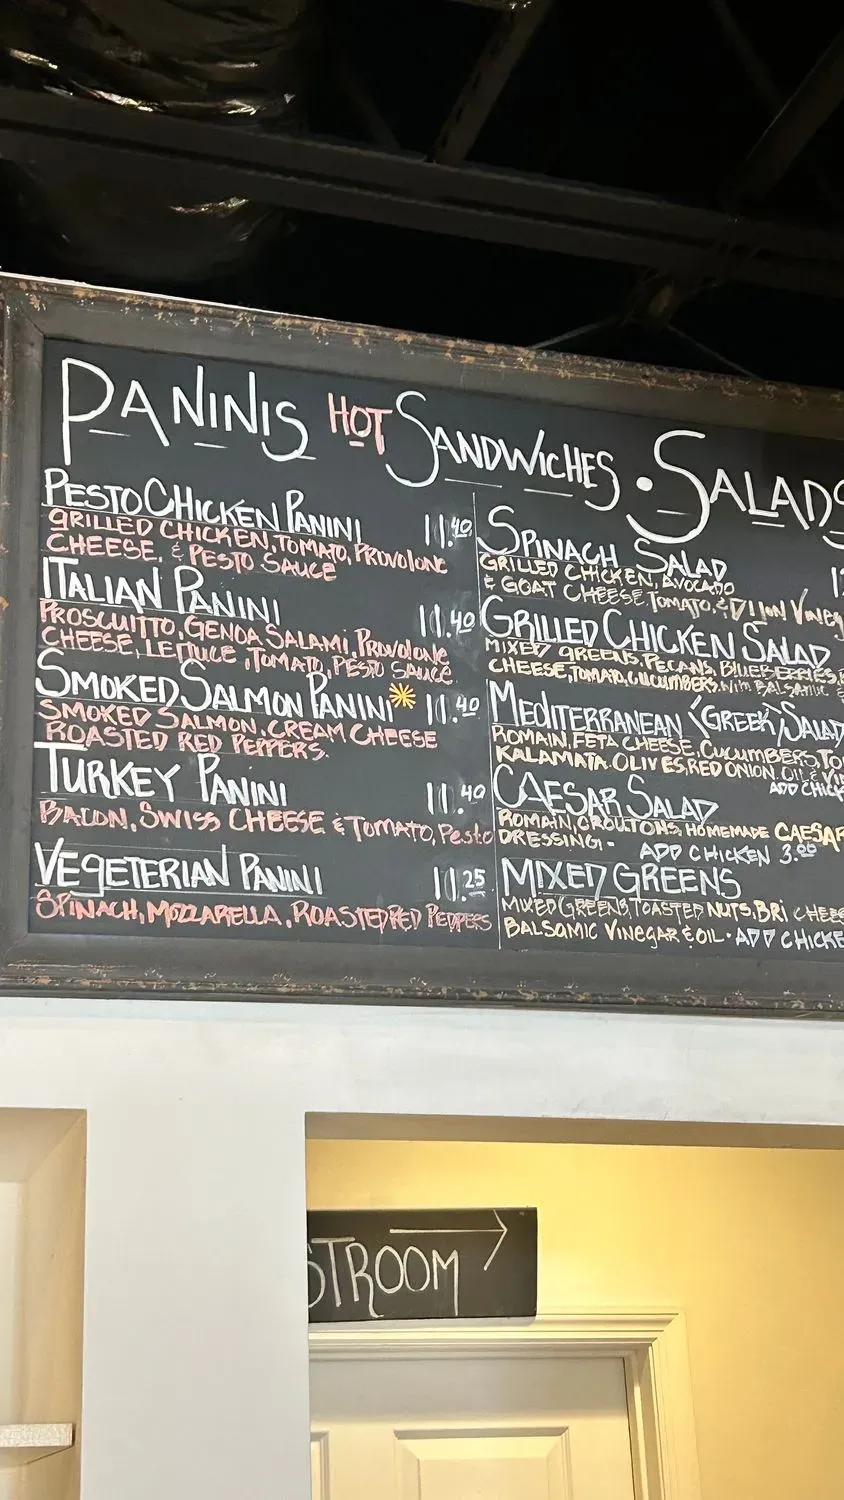 PANINIS HOT SANDWICHES • SALADS
PESTO CHICKEN PANINI 11.40
GRILLED CHICKEN, TOMATO, PROVOLONE
CHEESE, & PESTO SAUCE
ITALIAN PANINI 11.40
PROSCUITTO, GENOA SALAMI, PROVOLONE
CHEESE, LETTUCE, TOMATO, PESTO SAUCE
SMOKED SALMON PANINI 11.40
SMOKED SALMON, CREAM CHEESE
ROASTED RED PEPPERS.
TURKEY PANINI 11.40
BACON, SWISS CHEESE & TOMATO, Pesto
VEGETERIAN PANINI 11.25
SPINACH, MOZZARELLA, ROASTED RED PEPPERS
SPINACH SALAD
GRILLED CHICKEN, AVOCADO
& GOAT CHEESE, TOMATO, & DIJON
GRILLED CHICKEN SALAD
MIXED GREENS, PECANS, BLUEBERRIES,
CHEESE, TOMATO, CUCUMBERS, With BALSAMIC &
MEDITERRANEAN (GREEK) SALAD
ROMAIN, FETA CHEESE, CUCUMBERS,
KALAMATA OLIVES, RED ONION, OIL &
ADD
CAESAR SALAD
ROMAIN, CROUTONS, HOMEMADE CAESAR
DRESSING - ADD CHICKEN 3.00
MIXED GREENS
MIXED GREENS, TOASTED NUTS, BRI
BALSAMIC VINEGAR & OIL • ADD
STROOM